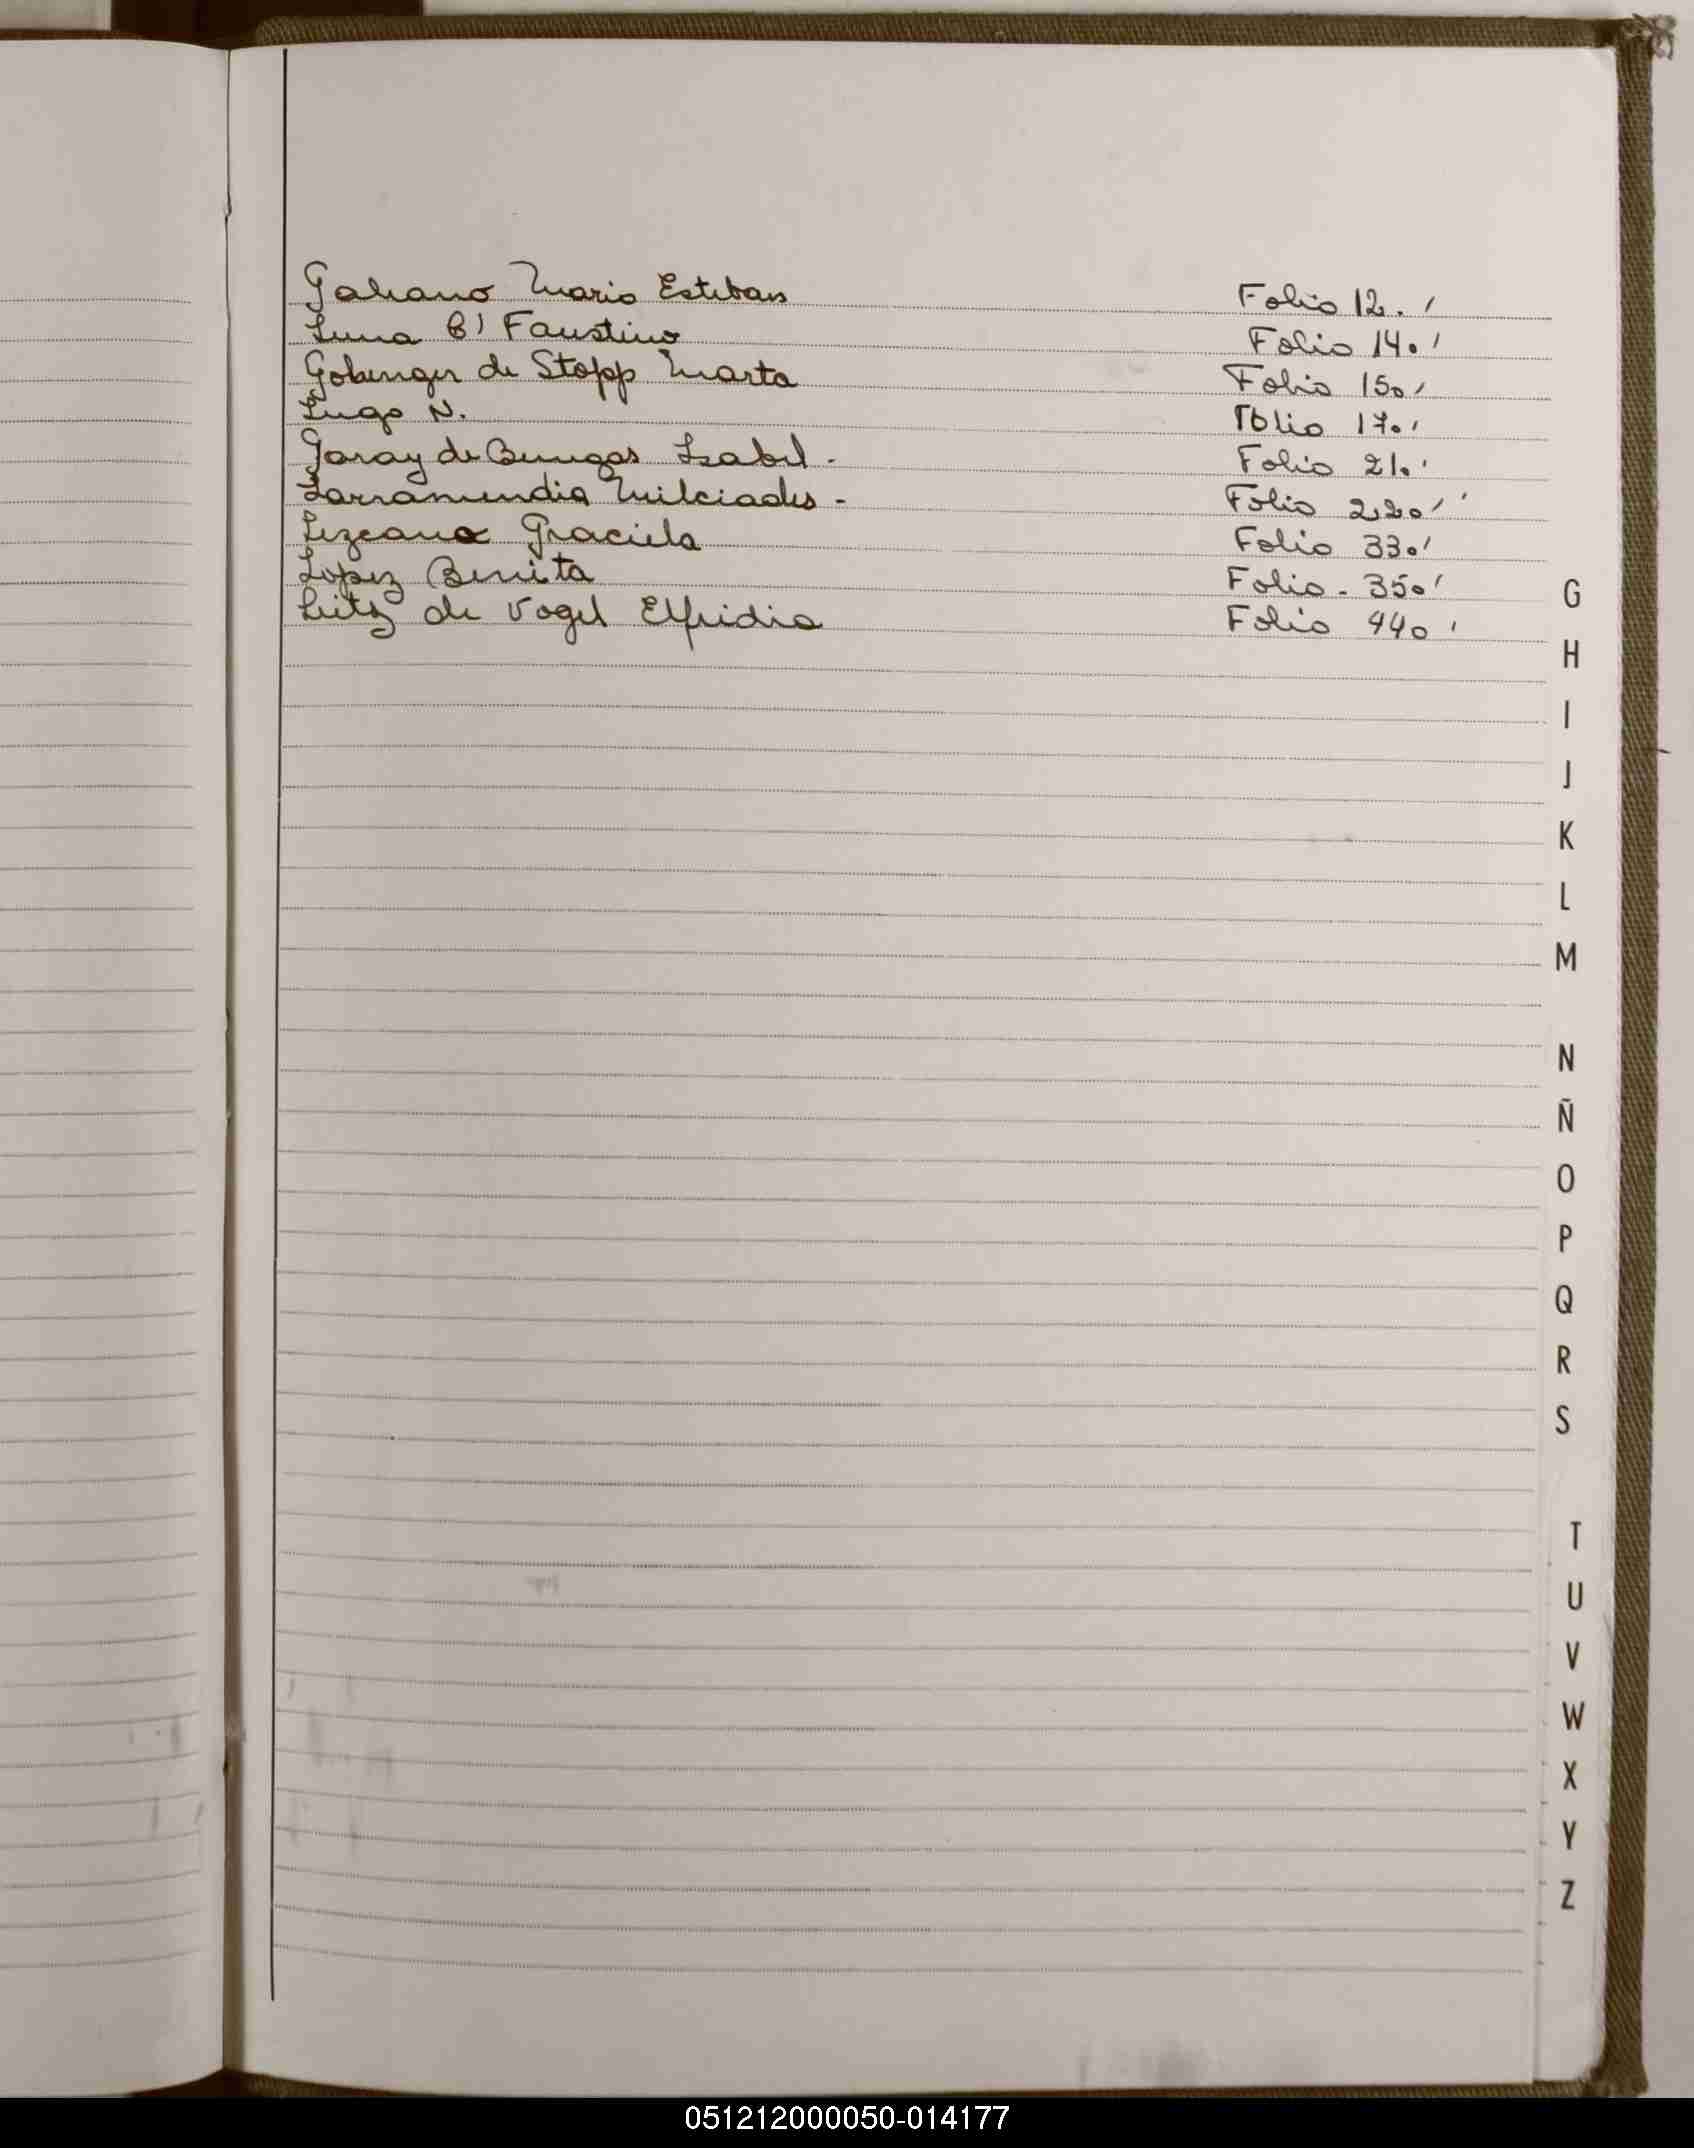 Galiano Mario Esteban Folio 12.
Luna B' Faustino Folio 14.
de Stopp Marta Folio 15.
Lugo N. Folio 17.
Garay de Isabel. Folio 21.
Larramendia Milciades - Folio 22.
Lezcano Graciela Folio 33.
Lopez Benita Folio - 35.
Leitz de Vogel Elfridia Folio 44.
G
H
I
J
K
L
M
N
Ñ
O
P
Q
R
S
T
U
V
W
X
Y
Z
051212000050-014177